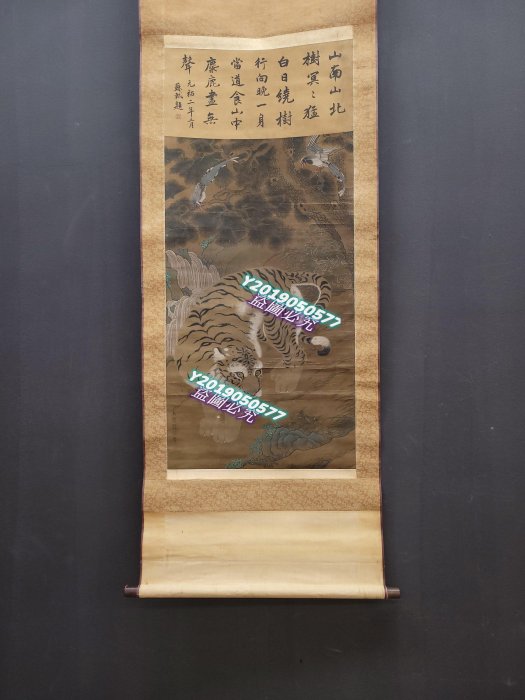 山南山北
樹冥〻猛
白日繞樹
行向晚一身
當道食山中
麋鹿盡無
聲
元祐二年三月
蘇軾題
Y2019050577
盜圖必究
Y2019050577
盜圖必究